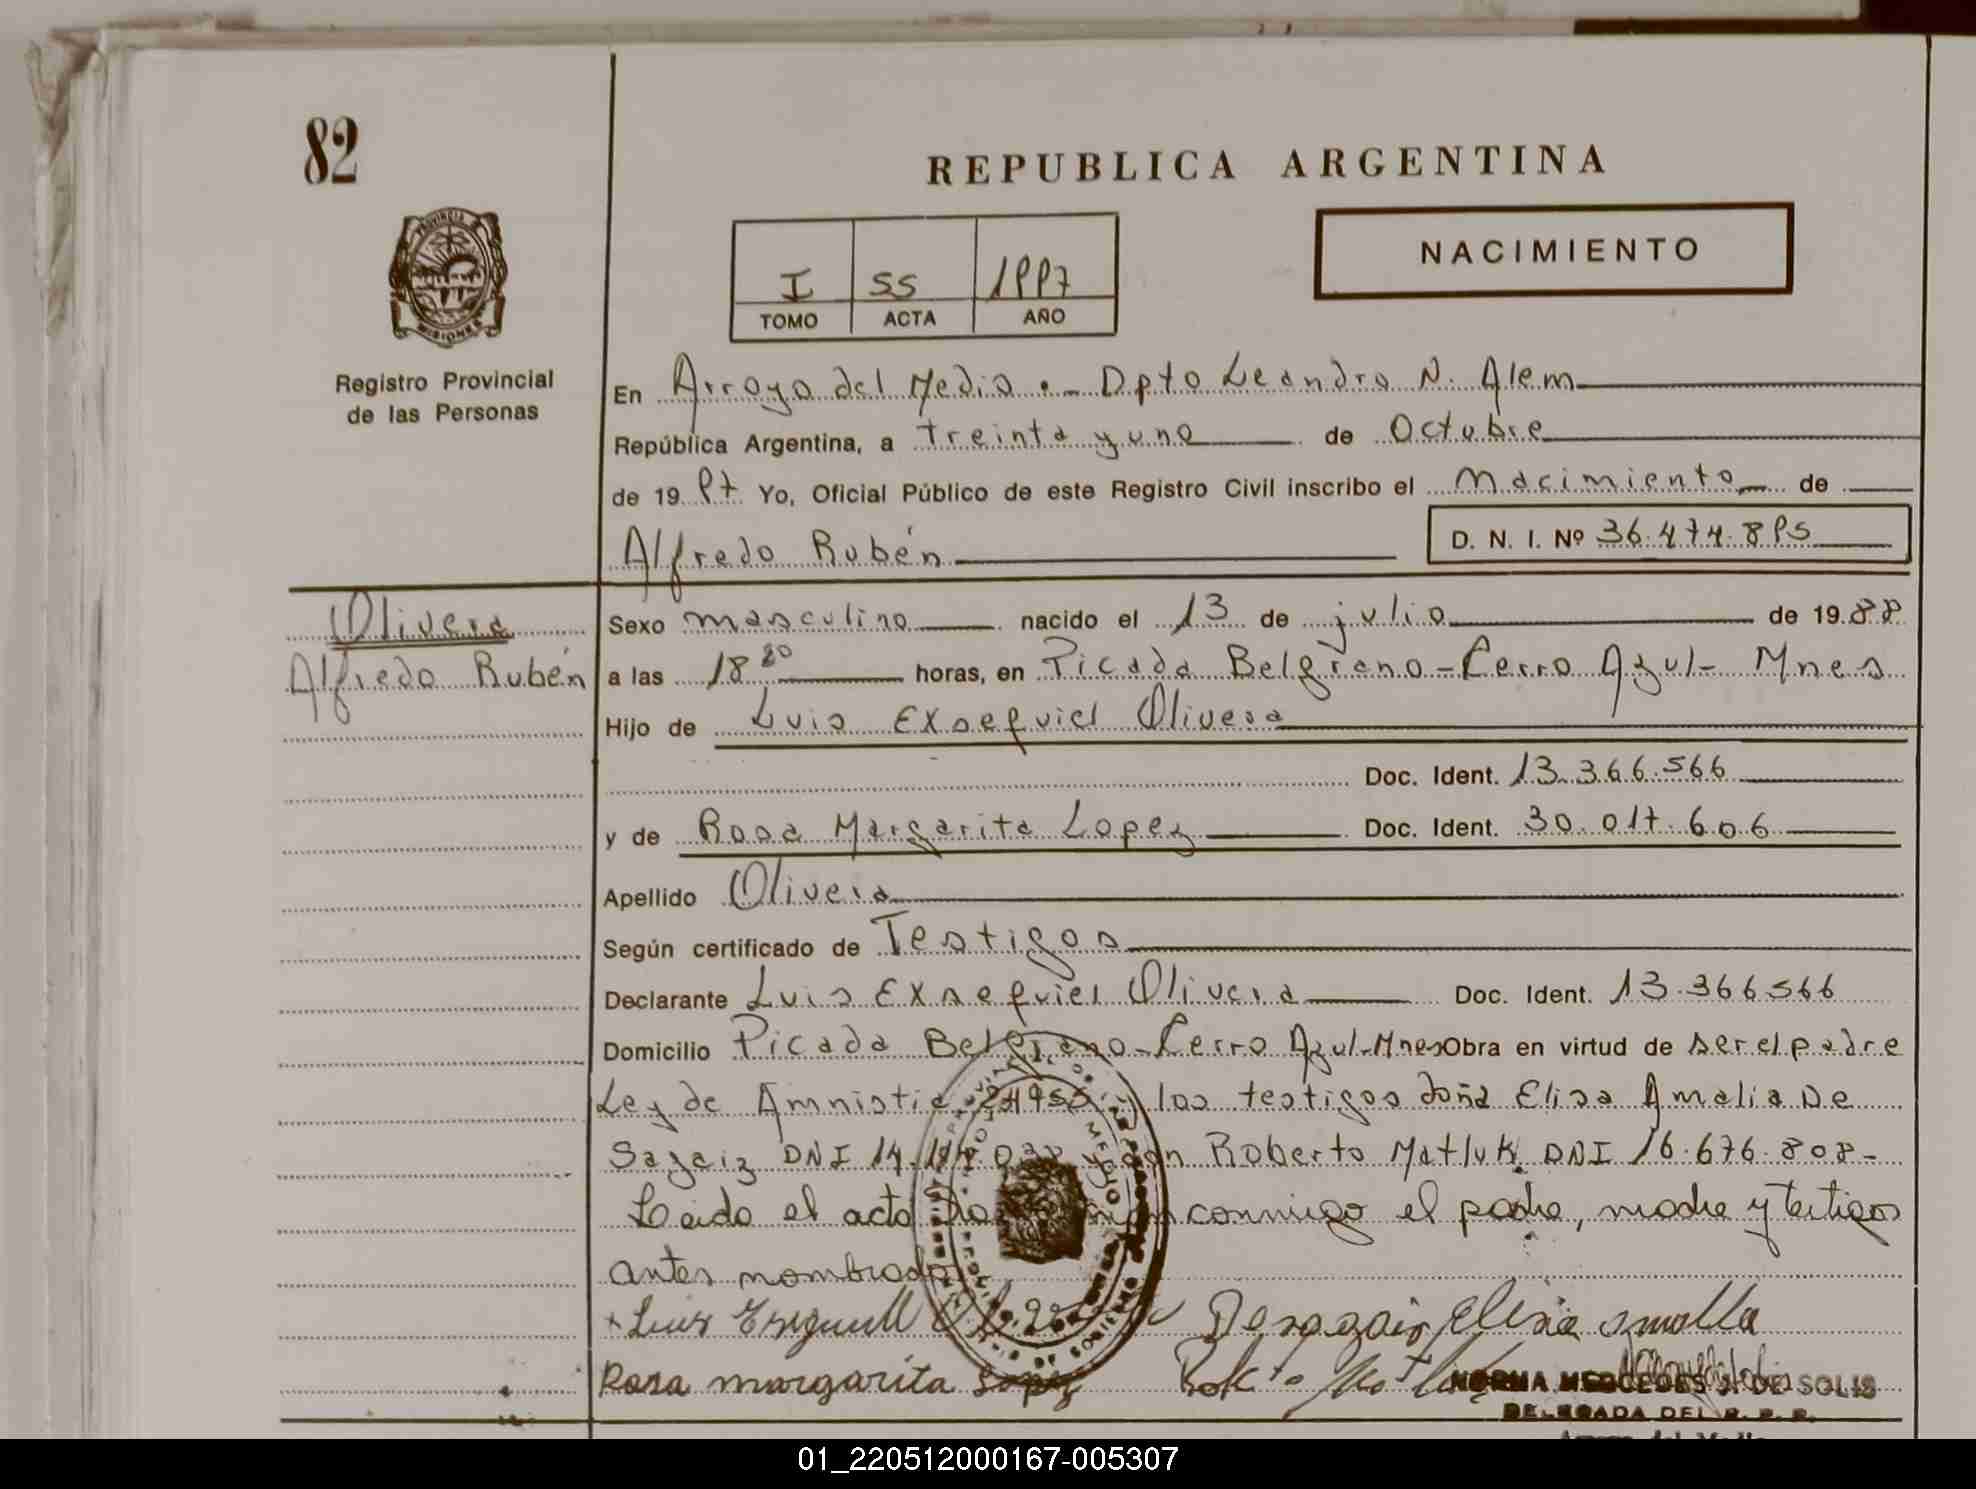 82
REPUBLICA ARGENTINA
PROVINCIA DE
MISIONES
I 55 1997
TOMO ACTA AÑO
NACIMIENTO
Registro Provincial
de las Personas
En Arroyo del Medio.- Dpto Leandro N. Alem
República Argentina, a treinta y uno de Octubre
de 19 97 Yo, Oficial Público de este Registro Civil inscribo el Nacimiento de
Alfredo Rubén D. N. I. Nº 36.474.895
Olivera
Alfredo Rubén
Sexo masculino nacido el 13 de julio de 19 88
a las 18 horas, en Picada Belgrano - Cerro Azul - Mnes
Hijo de Luis Exsequiel Olivera
Doc. Ident. 13.366.566
y de Rosa Margarita Lopez Doc. Ident. 30.017.606
Apellido Olivera
Según certificado de Testigos
Declarante Luis Exsequiel Olivera Doc. Ident. 13.366566
Domicilio Picada Belgrano - Cerro Azul - Mnes Obra en virtud de ser el padre
Ley de Amnistia los testigos doña Elisa Amalia De
Sagaiz DNI 14. y don Roberto Matluk DNI 16.676.808-
Leido el acta conmigo el padre, madre y testigos
antes nombrados
+ Luis
Rosa margarita Lopez
NORMA MERCEDES DE SOLIS
DELEGADA DEL R. P. P.
01_220512000167-005307